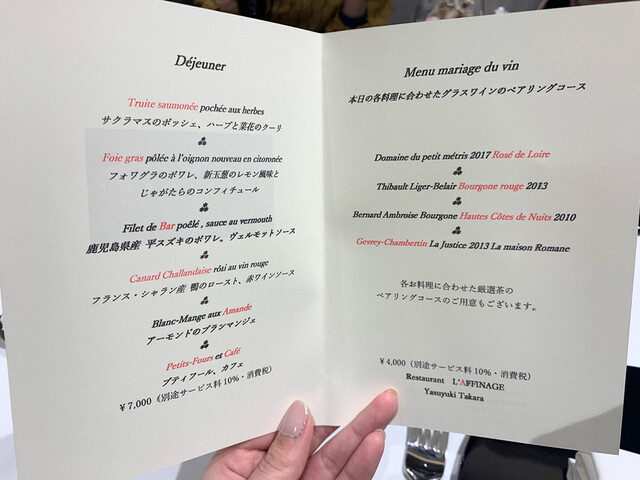 Déjeuner
Truite saumonée pochée aux herbes
サクラマスのポッシェ、ハーブと菜花のクーリ
Foie gras pôlée à l'oignon nouveau en citoronée
フォワグラのポワレ、新玉葱のレモン風味と
じゃがたらのコンフィチュール
Filet de Bar poêlé , sauce au vermouth
鹿児島県産 平スズキのポワレ。ヴェルモットソース
Canard Challandaise rôti au vin rouge
フランス・シャラン産 鴨のロースト、赤ワインソース
Blanc-Mange aux Amande
アーモンドのブランマンジェ
Petits-Fours et Café
プティフール、カフェ
￥7,000（別途サービス料10%・消費税）
Menu mariage du vin
本日の各料理に合わせたグラスワインのペアリングコース
Domaine du petit métris 2017 Rosé de Loire
Thibault Liger-Belair Bourgone rouge 2013
Bernard Ambroise Bourgone Hautes Côtes de Nuits 2010
Gevrey-Chambertin La Justice 2013 La maison Romane
各お料理に合わせた厳選茶の
ペアリングコースのご用意もございます。
￥4,000（別途サービス料10%・消費税）
Restaurant L'AFFINAGE
Yasuyuki Takara